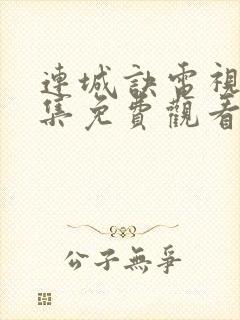 連城訣電視
集免費觀看
公子無爭